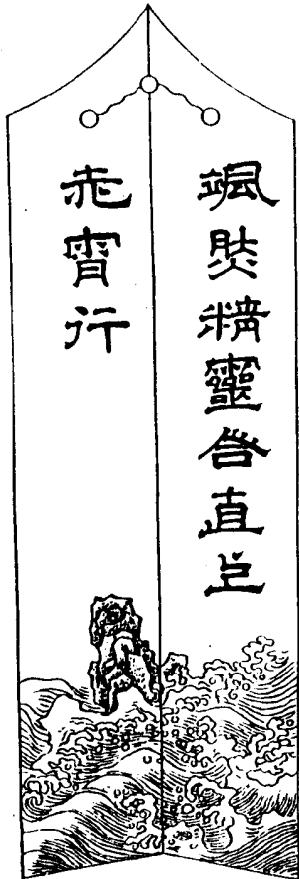 颯然精靈合直上
赤霄行